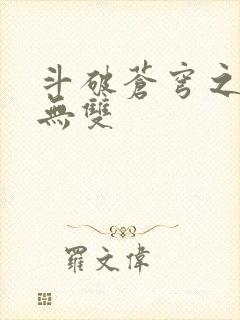 斗破蒼穹之
無雙
羅文偉